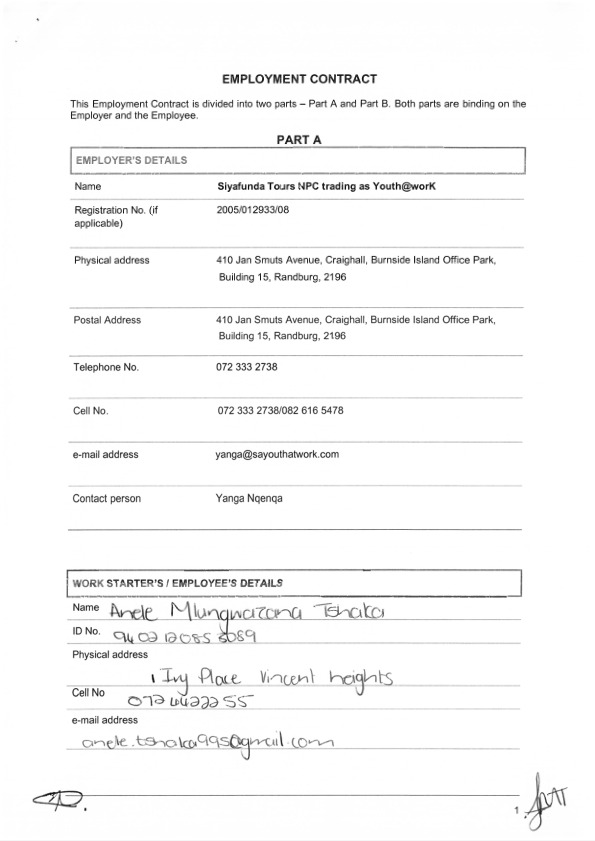 EMPLOYMENT CONTRACT
This Employment Contract is divided into two parts – Part A and Part B. Both parts are binding on the
Employer and the Employee.
PART A
EMPLOYER'S DETAILS
Name Siyafunda Tours NPC trading as Youth@worK
Registration No. (if 2005/012933/08
applicable)
Physical address 410 Jan Smuts Avenue, Craighall, Burnside Island Office Park,
Building 15, Randburg, 2196
Postal Address 410 Jan Smuts Avenue, Craighall, Burnside Island Office Park,
Building 15, Randburg, 2196
Telephone No. 072 333 2738
Cell No. 072 333 2738/082 616 5478
e-mail address yanga@sayouthatwork.com
Contact person Yanga Nqenqa
WORK STARTER'S / EMPLOYEE'S DETAILS
Name Anele Mlungwazana Tshaka
ID No.
Physical address
1 Ivy Place Vincent heights
Cell No
e-mail address
anele.tshaka995@gmail.com
1